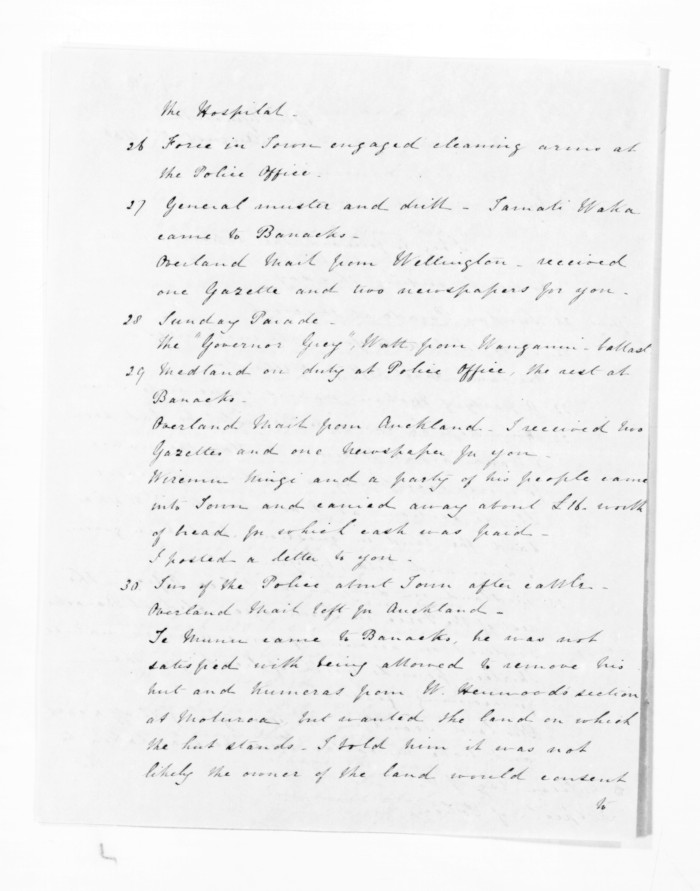 the Hospital -
26 Force in Town engaged cleaning arms at
the Police Office -
27 General muster and drill - Tamati Waka
came to Barracks -
Overland Mail from Wellington - received
one Gazette and two newspapers for you -
28 Sunday Parade -
The "Governor Grey", Watt from Wanganui - ballast
29 Medland on duty at Police Office, the rest at
Barracks -
Overland Mail from Auckland - I received two
Gazettes and one Newspaper for you -
Wiremu Kingi and a party of his people came
into Town and carried away about £16 - worth
of bread for which cash was paid -
I posted a letter to you -
30 Two of the Police about Town after cattle -
Overland Mail left for Auckland -
Te Munu came to Barracks, he was not
satisfied with being allowed to remove his
hut and Kumeras from W. Henwood's section
at Moturoa but wanted the land on which
the hut stands - I told him it was not
likely the owner of the land would consent
to